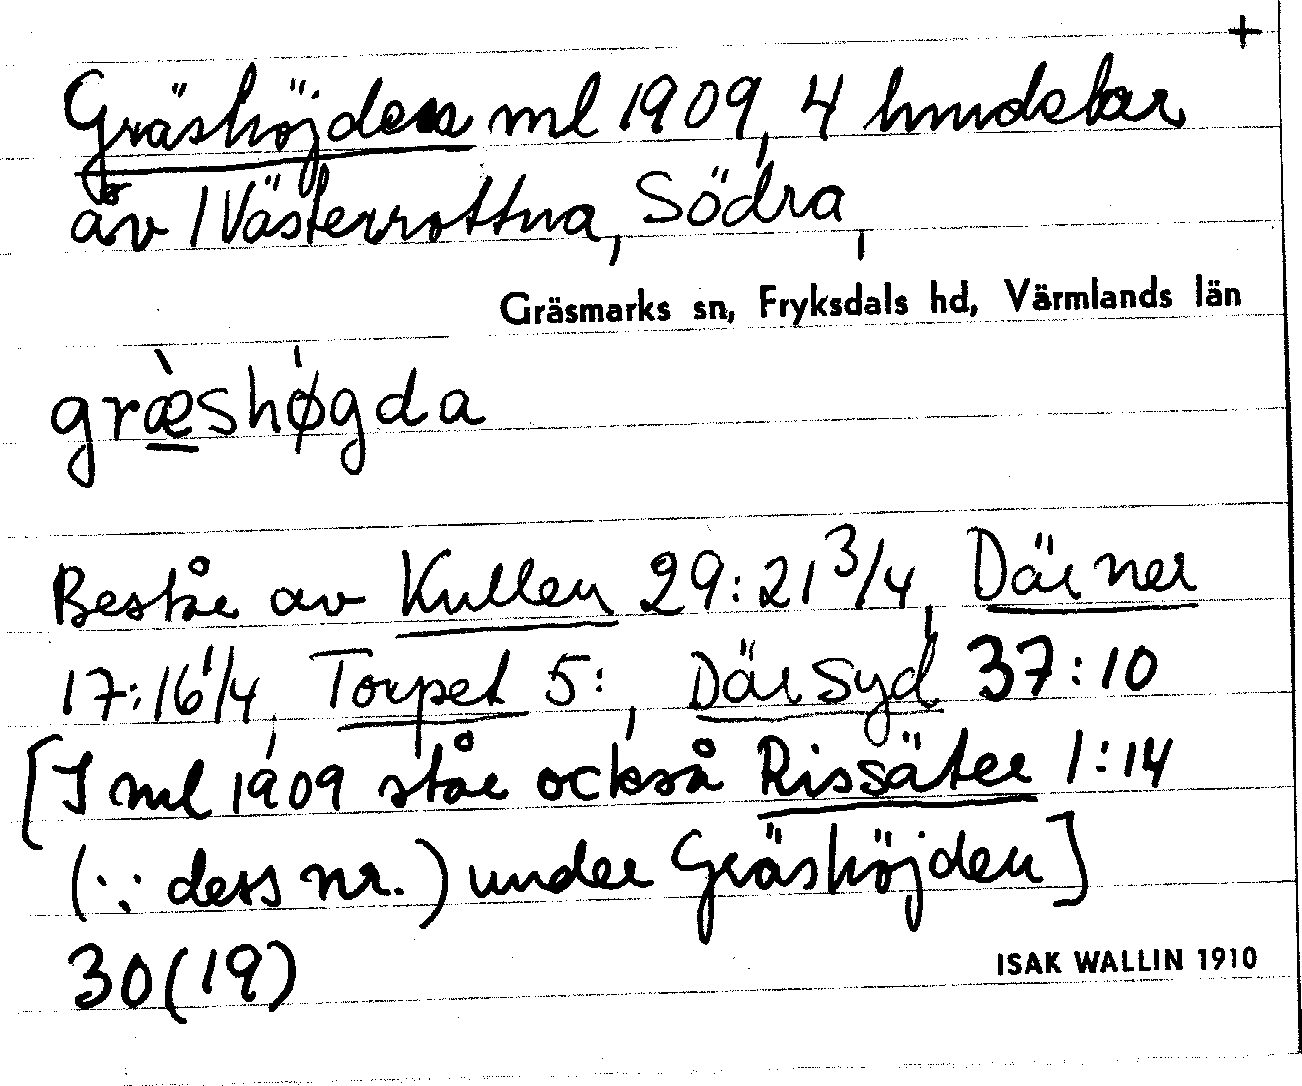 +
Gräshöjden ml 1909, 4 hmdelar
av 1 Västerrottna, Södra,
Gräsmarks sn, Fryksdals hd, Värmlands län
græ̀shǿgda
Består av Kullen 29:21 3/4, Där ner
17:16 1/4, Torpet 5:, Där syd 37:10
[I ml 1909 står också Rissäter 1:14
(∵: dess nr.) under Gräshöjden]
30(19)
ISAK WALLIN 1910